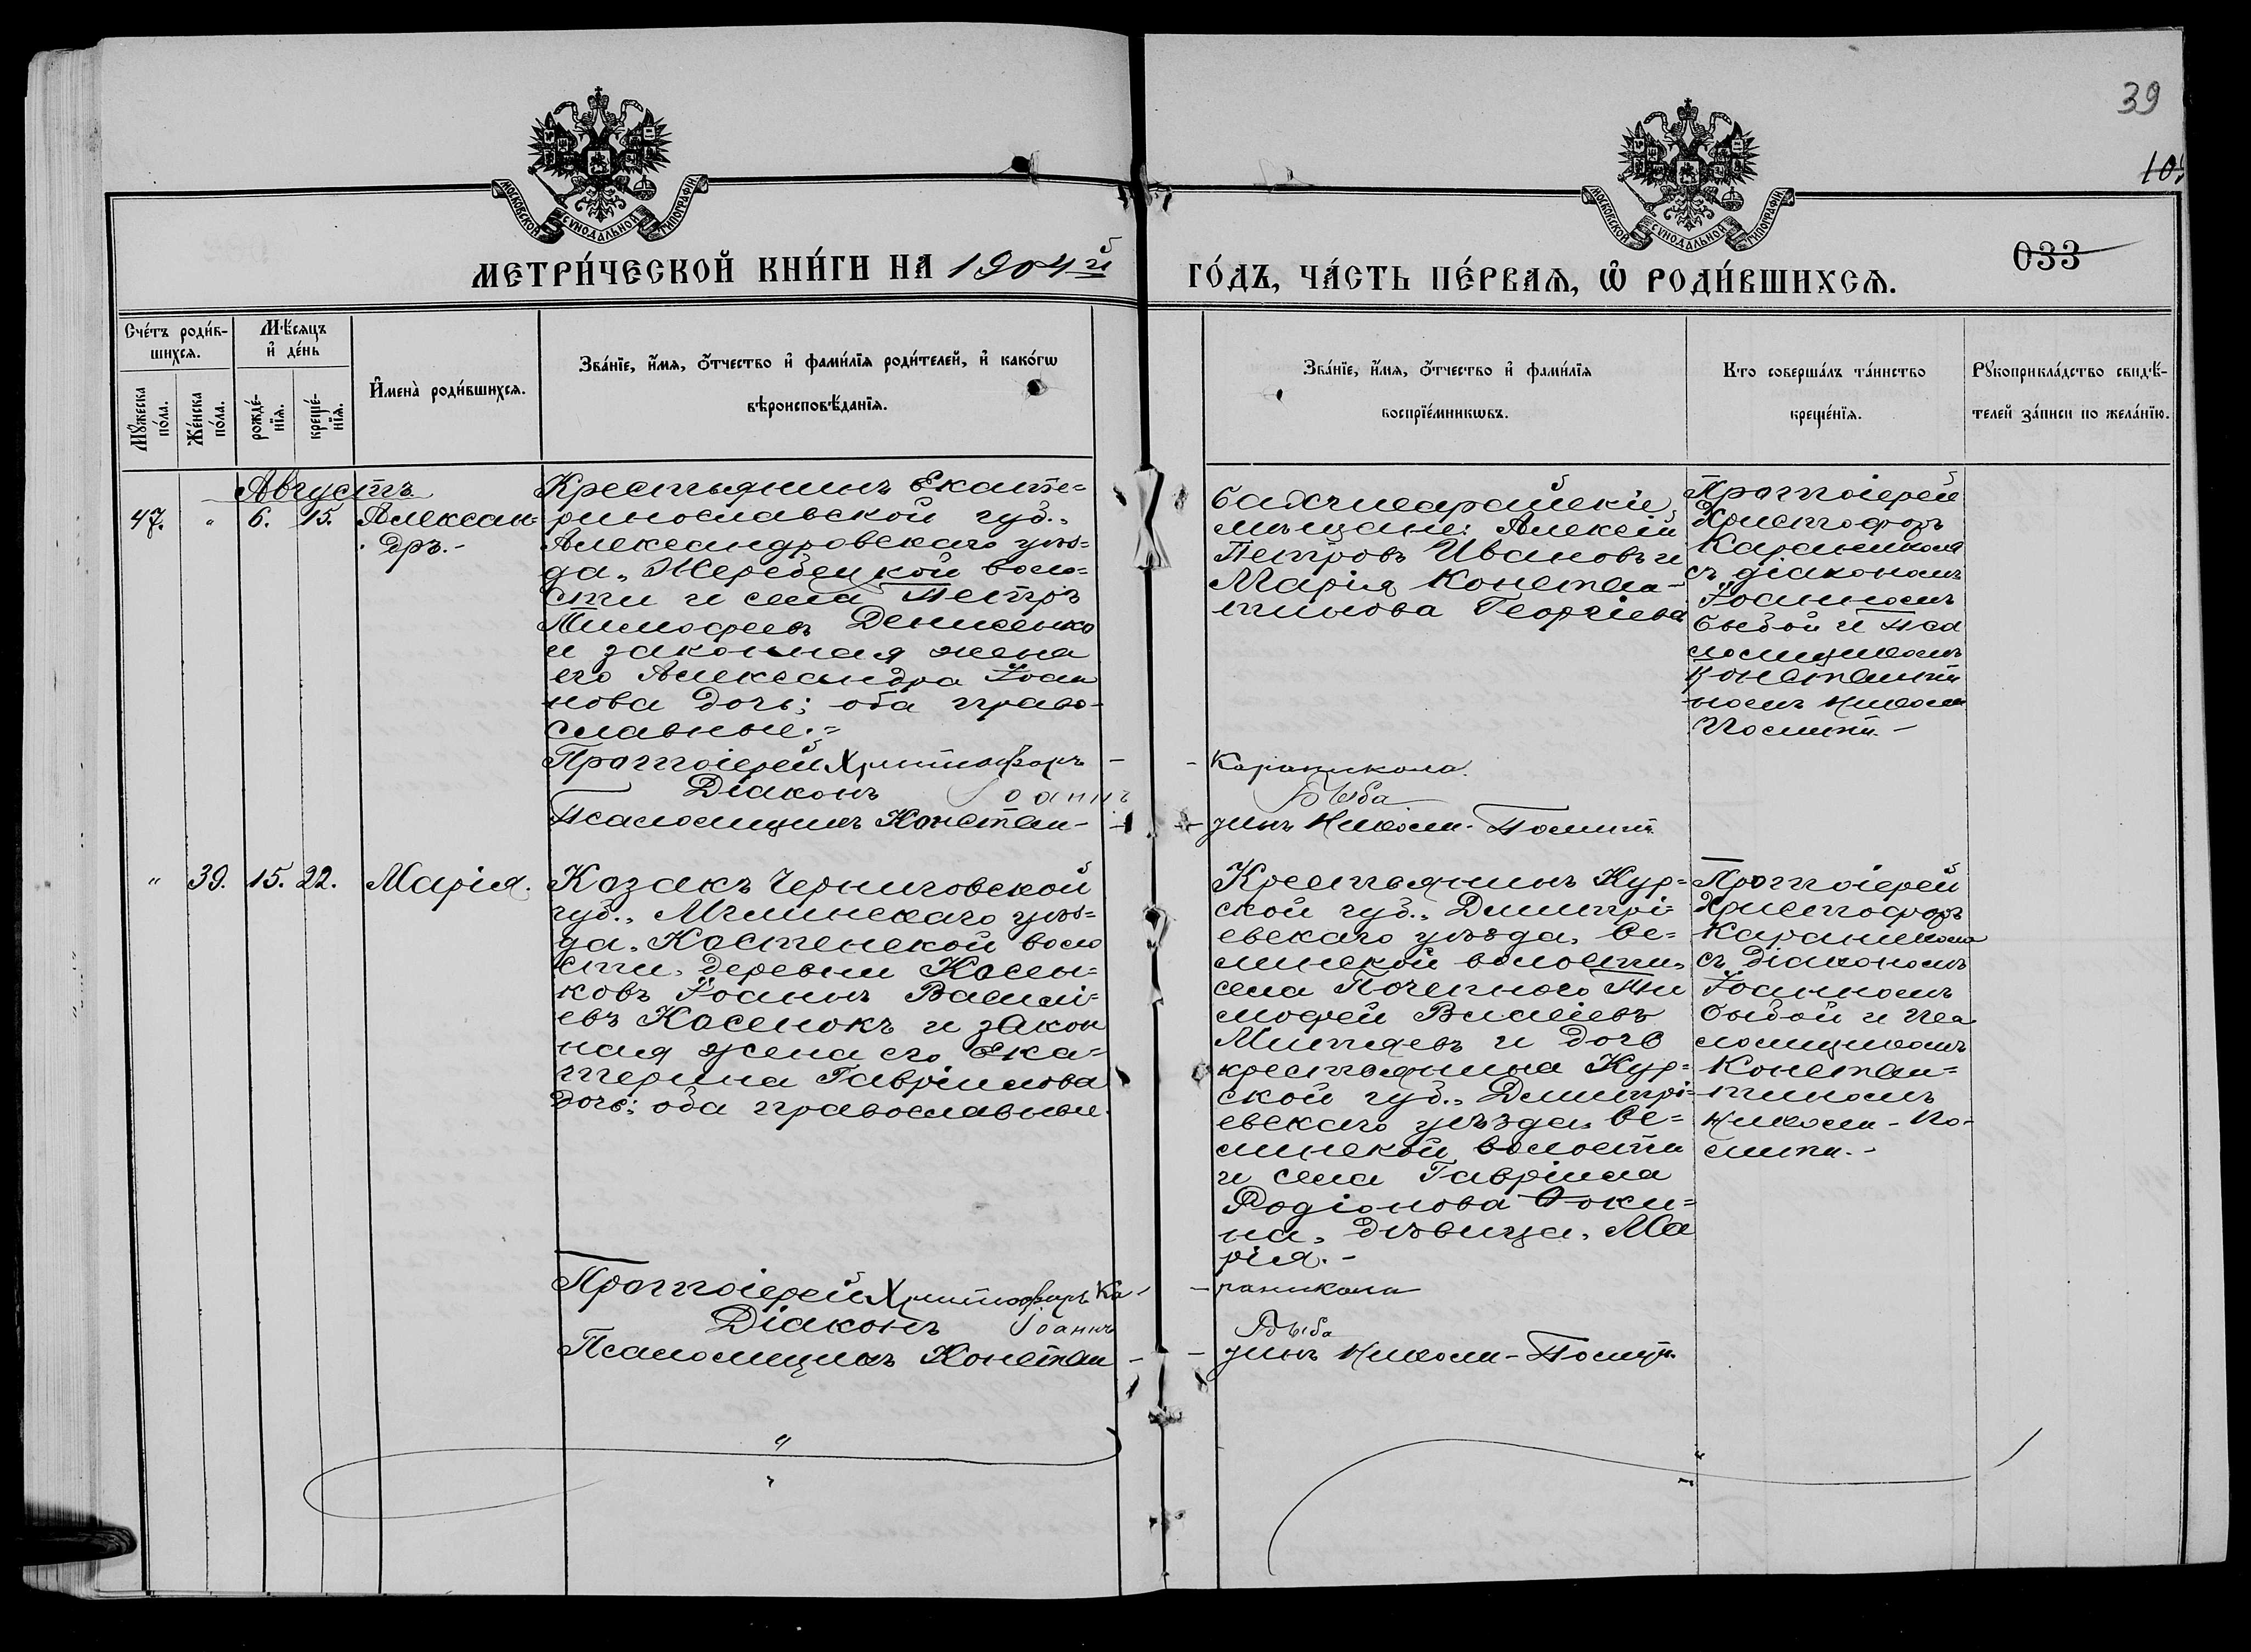 39
10
033
МОСКОВСКОЙ СѴНОДАЛЬНОЙ ТИПОГРАФІИ
МОСКОВСКОЙ СѴНОДАЛЬНОЙ ТИПОГРАФІИ
МЕТРИ́ЧЕСКОЙ КНИ́ГИ НА 1904й
ГО́ДЪ, ЧА́СТЬ ПЕ́РВАѦ, Ѡ҆ РОДИ́ВШИХСѦ.
Сче́тъ роди́в-
шихсѧ.
Мꙋ́жеска по́ла.
Же́нска по́ла.
Мѣ́сѧцъ
и҆ де́нь
рожде́-
нїѧ.
креще́-
нїѧ.
И҆мена̀ роди́вшихсѧ.
Зва́нїе, и҆́мѧ, ѻ҆́тчество и҆ фами́лїѧ роди́телей, и҆ како́гѡ
вѣроисповѣ́данїѧ.
Зва́нїе, и҆́мѧ, ѻ҆́тчество и҆ фами́лїѧ
воспрїе́мникѡвъ.
Кто соверша́лъ та́инство
креще́нїѧ.
Рꙋкоприкла́дство свидѣ́-
телей за́писи по жела́нїю.
Августъ
47. " 6. 15. Алексан-
дръ.-
Крестьянинъ Екате=
ринославской губ.,
Александровскаго уѣз=
да, Жеребецкой воло=
сти и села Петръ
Тимофеевъ Денисенко
и законная жена
его Александра Іоан
нова дочь; оба право-
славные.=
Бахчисарайскіе
мѣщане: Алексій
Петровъ Ивановъ и
Марія Констан-
тинова Георгіева
Протоіерей
Христофоръ
Караникола
съ діакономъ
Іоанномъ
Быбой и Пса
ломщикомъ
Константи
номъ Николи
Посмити.-
Протоіерей Христофоръ -
- Караникола.
Діаконъ Іоаннъ
Быба
Псаломщикъ Констан-
- тинъ Николи-
" 39. 15. 22. Марія.
Козакъ Черниговской
губ., Мглинскаго уѣз=
да, Костенской воло
сти, деревни Косен=
ковъ Іоаннъ Василі=
евъ Косенокъ и закон
ная жена его Ека=
терина Гавріилова
дочь; оба православные.
Крестьянинъ Кур=
ской губ., Димитрі=
евскаго уѣзда, Се=
линской волости,
села Почепнаго Ти
мофей
Митяевъ и дочь
крестьянина Кур=
ской губ., Димитрі=
евскаго уѣзда, Се=
линской волости
и села Гавріила
Родіонова Фоки=
на, дѣвица, Ма
рія.-
Протоіерей
Христофоръ
Караникола
съ Діакономъ
Іоанномъ
Быбой и Пса
ломщикомъ
Констан=
тиномъ
Николи - По-
смити.-
Протоіерей Христофоръ Ка-
- раникола
Діаконъ Іоаннъ
Быба
Псаломщикъ Констан -
- тинъ Николи-